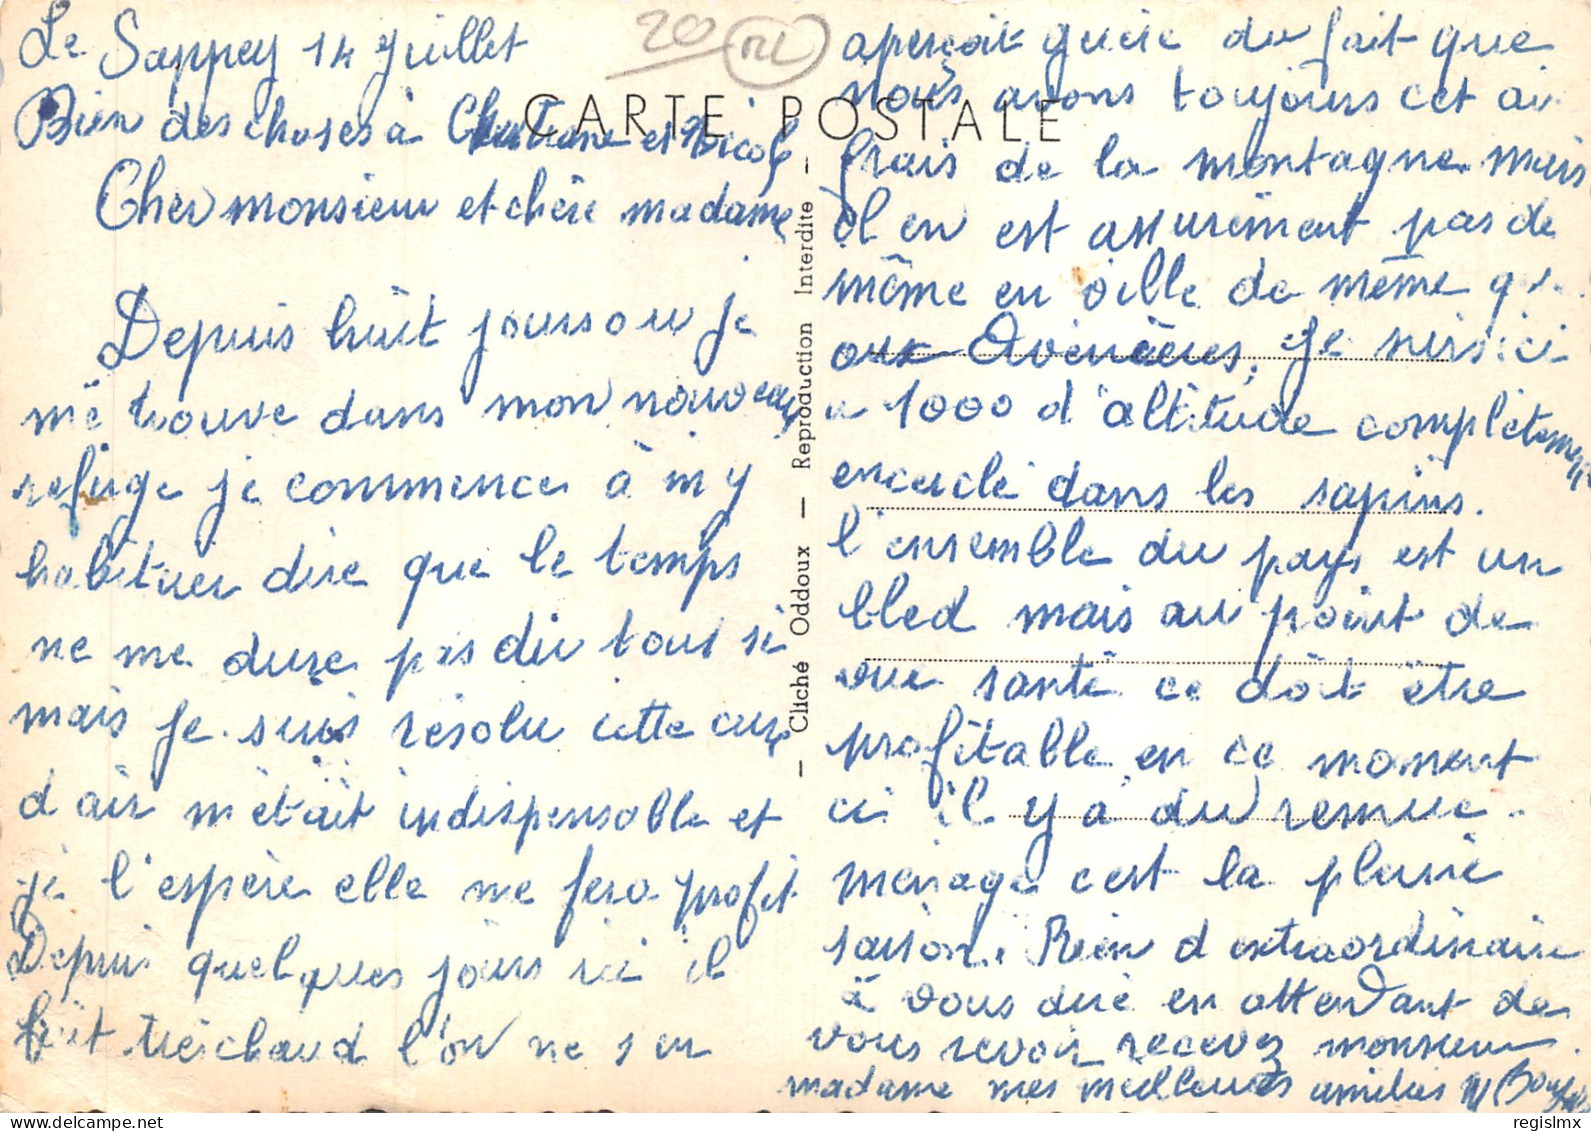 Le Sappey 14 Juillet
Bien des choses à Christiane et Nicole
Cher monsieur et chère madame
Depuis huit jours ou je
me trouve dans mon nouveau
refuge je commence à m y
habituer dire que le temps
ne me dure pas du tout si
mais je suis résolu cette cure
d'air m'était indispensable et
je l'espère elle me fera profit
Depuis quelques jours ici il
fait très chaud l'on ne s en
20
CARTE POSTALE
Cliché Oddoux — Reproduction Interdite
aperçoit guère du fait que
nous avons toujours cet air
frais de la montagne mais
il en est assurément pas de
même en ville de même que
aux Avenières, je suis ici
a 1000 d'altitude complètement
encerclé dans les sapins.
l'ensemble du pays est un
bled mais au point de
vue santé ce doit être
profitable en ce moment
ci il y a du remue
ménage c'est la pleine
saison. Rien d'extraordinaire
à vous dire en attendant de
vous revoir recevez monsieur
madame mes meilleures amitiés
regislmx